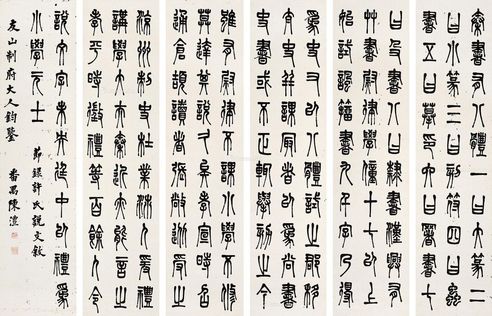 秦書有八體一曰大篆二
曰小篆三曰刻符四曰蟲
書五曰摹印六曰署書七
曰殳書八曰隸書漢興有
艸書尉律學僮十七已上
始試諷籀書九千字乃得
為史又以八體試之郡移
太史并課最者以為尚書
史書或不正輒舉劾之今
雖有尉律不課小學不修
莫達其說久矣孝宣時召
通倉頡讀者張敞從受之
涼州刺史杜業沛人爰禮
講學大夫秦近亦能言之
孝平時徵禮等百餘人令
說文字未央廷中以禮為
小學元士
節錄許氏說文敘
友山制府大人鈞鑒
番禺陳澧